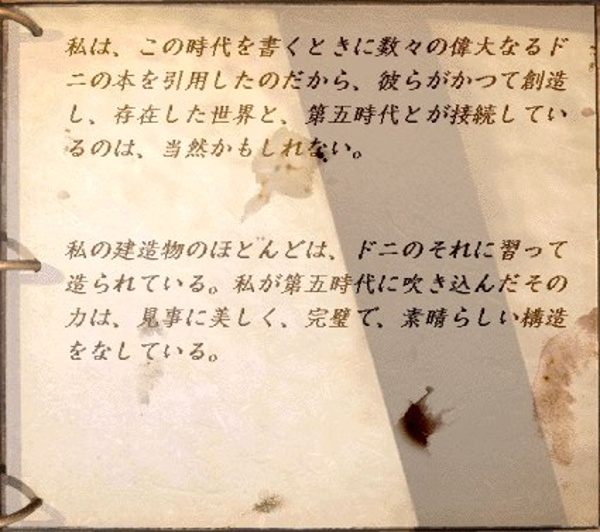 私は、この時代を書くときに数々の偉大なるド
ニの本を引用したのだから、彼らがかつて創造
し、存在した世界と、第五時代とが接続してい
るのは、当然かもしれない。
私の建造物のほとんどは、ドニのそれに習って
造られている。私が第五時代に吹き込んだその
力は、見事に美しく、完璧で、素晴らしい構造
をなしている。